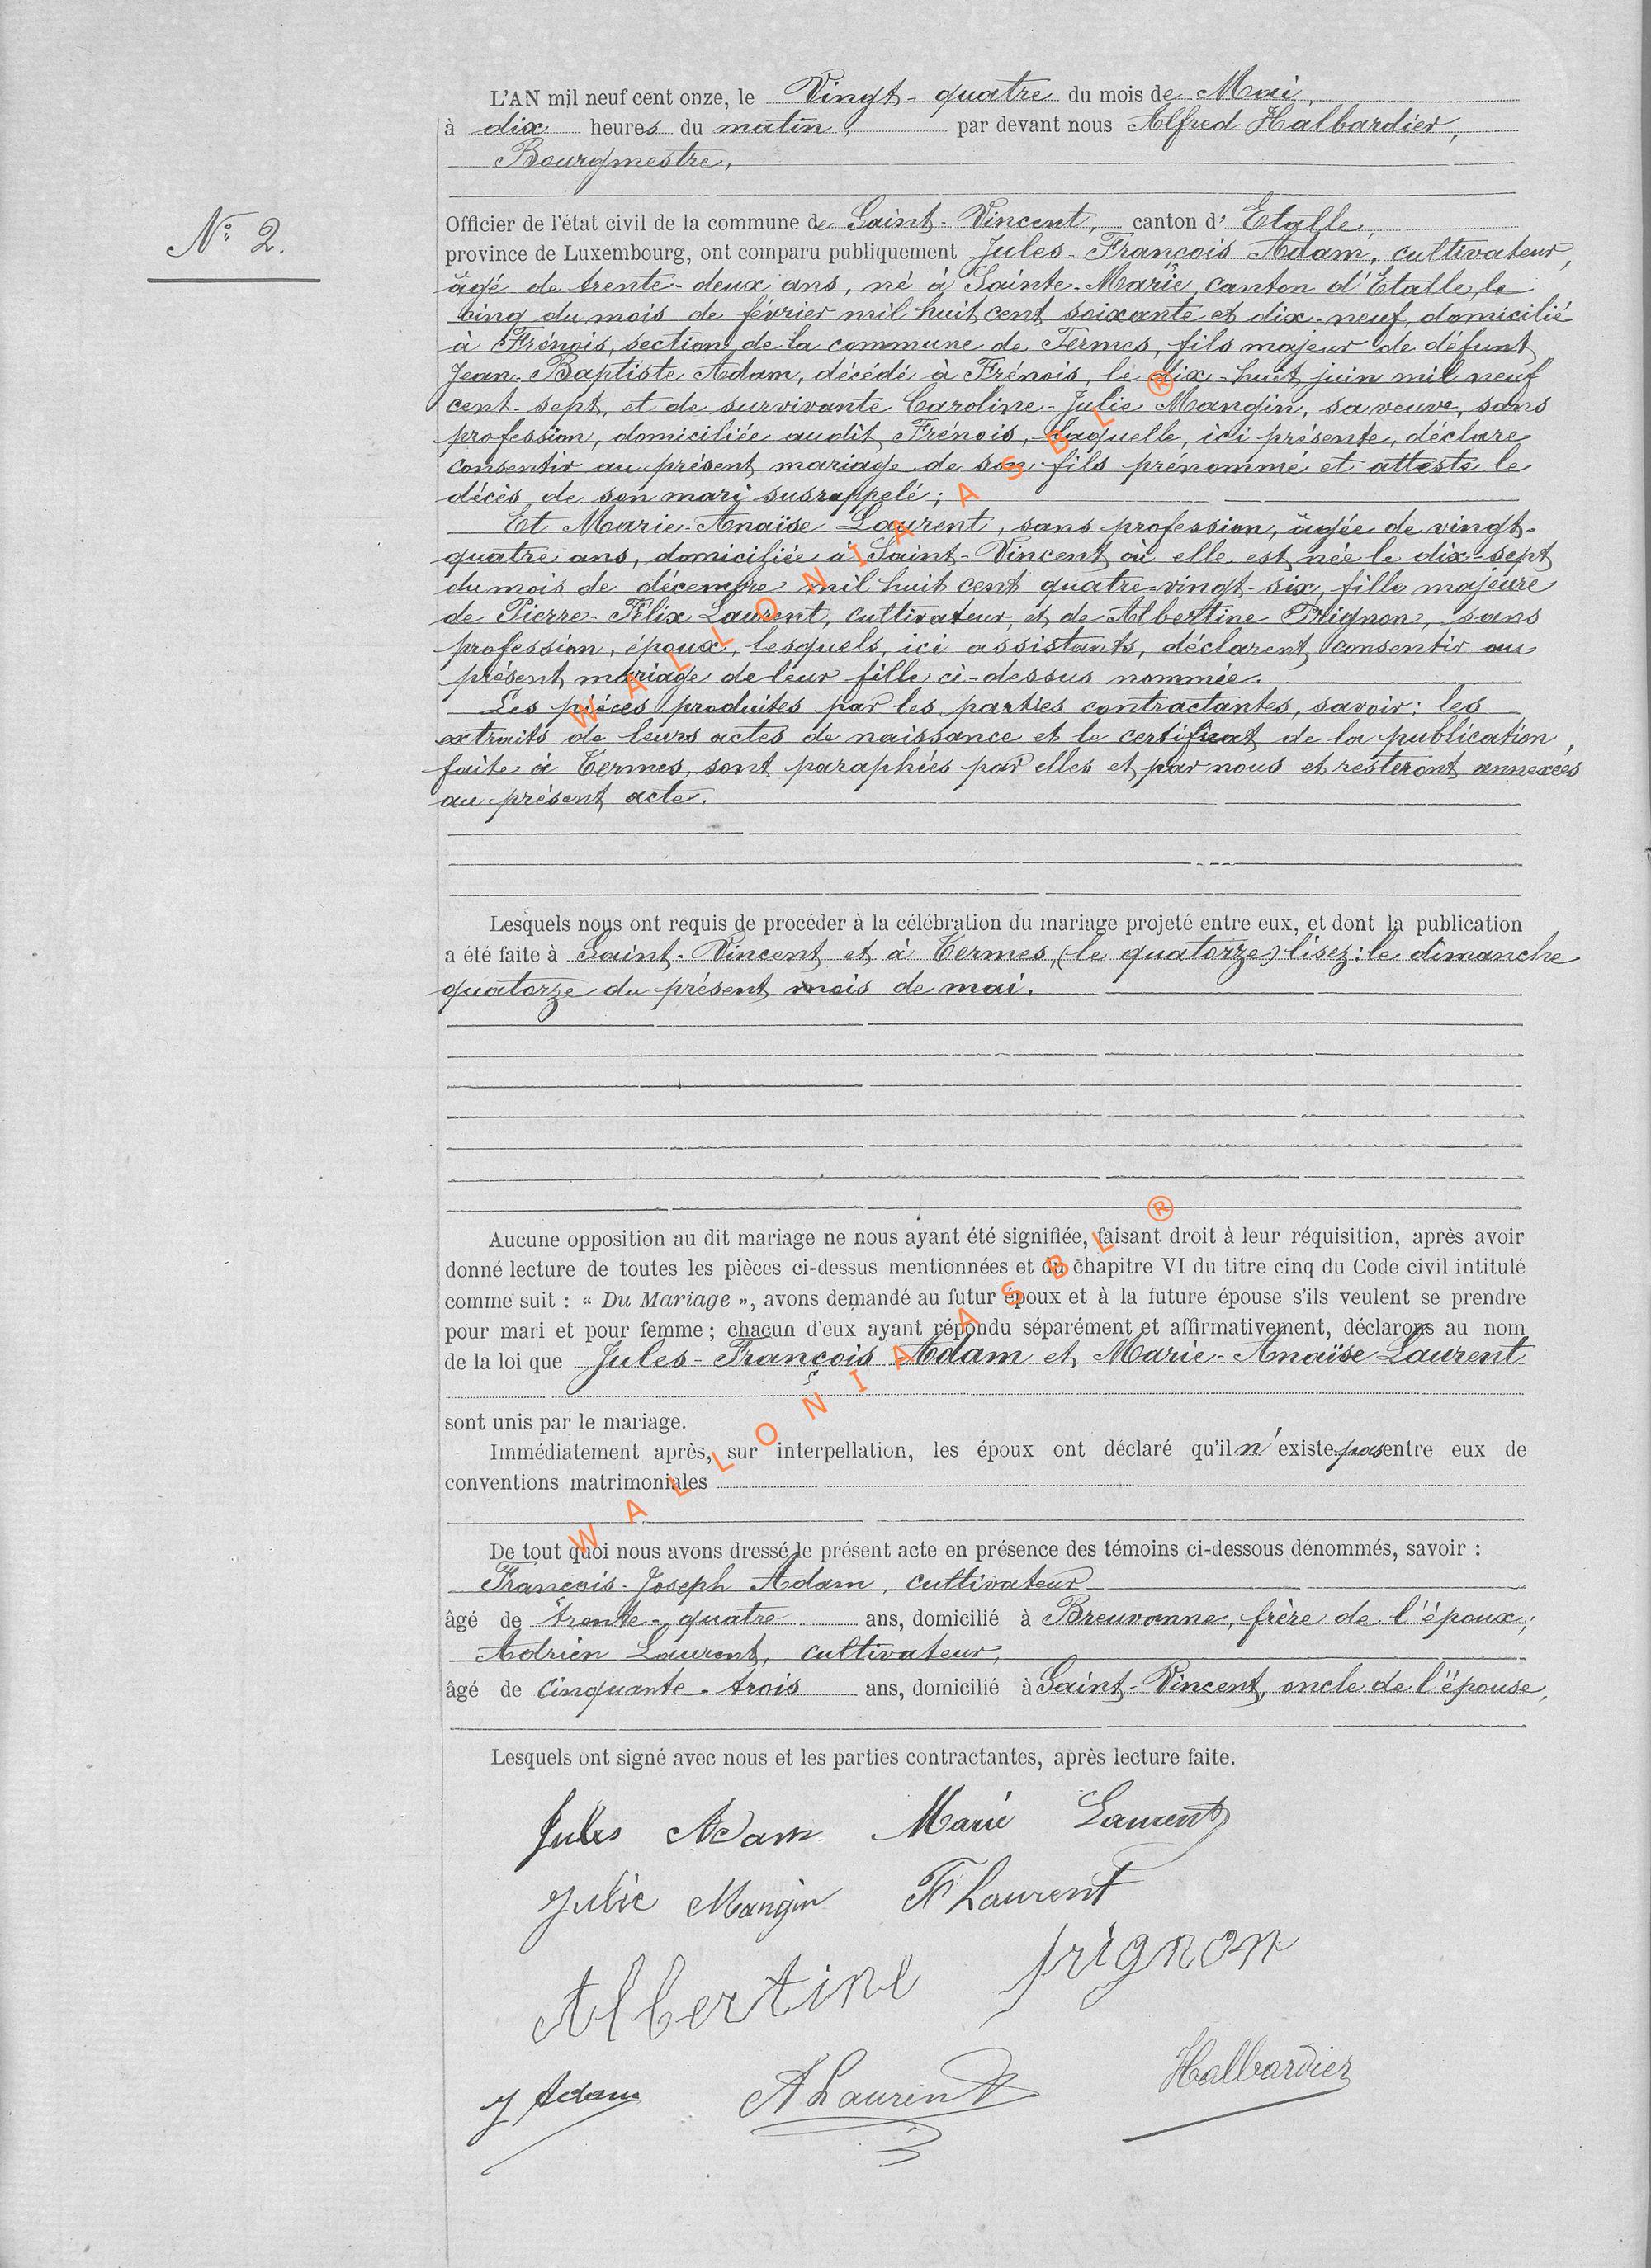 L'AN mil neuf cent onze, le Vingt-quatre du mois de Mai,
à dix heures du matin, par devant nous Alfred Halbardier,
Bourgmestre,
N° 2.
Officier de l'état civil de la commune de Saint-Vincent, canton d' Etalle,
province de Luxembourg, ont comparu publiquement Jules-François Adam, cultivateur,
âgé de trente-deux ans, né à Sainte-Marie, canton d'Etalle, le
cinq du mois de février mil huit cent soixante et dix-neuf, domicilié
à Frénois, section de la commune de Termes, fils majeur de défunt
Jean-Baptiste Adam, décédé à Frénois, le dix-huit juin mil neuf
cent-sept, et de survivante Caroline-Julie Mangin, sa veuve, sans
profession, domiciliée audit Frénois, laquelle, ici présente, déclare
consentir au présent mariage de son fils prénommé et atteste le
décès de son mari susrappelé;
Et Marie-Anaïse Laurent, sans profession, âgée de vingt-
quatre ans, domiciliée à Saint-Vincent où elle est née le dix-sept
du mois de décembre mil huit cent quatre-vingt-six, fille majeure
de Pierre-Félix Laurent, cultivateur, et de Albertine Prignon, sans
profession, époux, lesquels, ici assistants, déclarent consentir au
présent mariage de leur fille ci-dessus nommée.
Les pièces produites par les parties contractantes, savoir: les
extraits de leurs actes de naissance et le certificat de la publication,
faite à Termes, sont paraphées par elles et par nous et resteront annexées
au présent acte.
WALLONIA ASBL ®
Lesquels nous ont requis de procéder à la célébration du mariage projeté entre eux, et dont la publication
a été faite à Saint-Vincent et à Termes, (le quatorze) lisez: le dimanche
quatorze du présent mois de mai.
Aucune opposition au dit mariage ne nous ayant été signifiée, faisant droit à leur réquisition, après avoir
donné lecture de toutes les pièces ci-dessus mentionnées et du chapitre VI du titre cinq du Code civil intitulé
comme suit : « Du Mariage », avons demandé au futur époux et à la future épouse s'ils veulent se prendre
pour mari et pour femme ; chacun d'eux ayant répondu séparément et affirmativement, déclarons au nom
de la loi que Jules-François Adam et Marie-Anaïse Laurent
sont unis par le mariage.
Immédiatement après, sur interpellation, les époux ont déclaré qu'il n'existe pas entre eux de
conventions matrimoniales
WALLONIA ASBL ®
De tout quoi nous avons dressé le présent acte en présence des témoins ci-dessous dénommés, savoir :
François-Joseph Adam, cultivateur
âgé de trente-quatre ans, domicilié à Breuvanne, frère de l'époux;
Adrien Laurent, cultivateur,
âgé de Cinquante-trois ans, domicilié à Saint-Vincent, oncle de l'épouse,
Lesquels ont signé avec nous et les parties contractantes, après lecture faite.
Jules Adam Marie Laurent
Julie Mangin F Laurent
Albertine prignon
J Adam A Laurent Halbardier